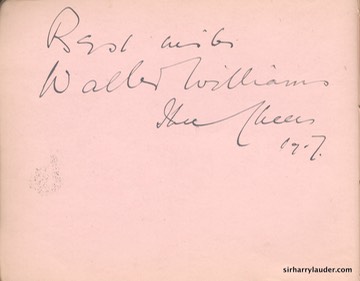 Best wishes
Walter Williams
1907.
sirharrylauder.com